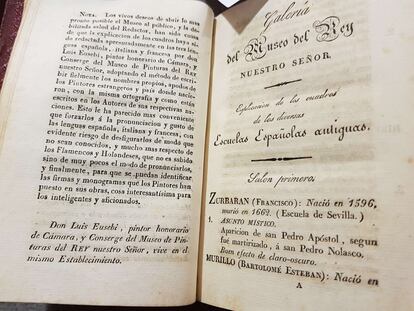 NOTA. Los vivos deseos de abrir lo mas
pronto posible el Museo al público, y la de-
bilitada salud del Redactor, han sido causa
de que la explicacion de los cuadros haya si-
do redactada apresuradamente en las tres len-
guas española, italiana y francesa por don
Luis Eusebi, pintor honorario de Cámara, y
Conserge del Museo de Pinturas del REY
nuestro Señor, adoptando el método de escri-
bir fielmente los nombres propios, apodos de
Pintores extrangeros y pais donde nacie-
ron, con la misma ortografía y como están
escritos en los Autores de sus respectivas na-
ciones. Esto le ha parecido mas conveniente
que forzarlos á la pronunciacion y gusto de
las lenguas española, italiana y francesa, con
evidente riesgo de desfigurarlos de modo que
no sean conocidos, y mucho mas respecto de
los Flamencos y Holandeses, que no es sabido
sino de muy pocos el modo de pronunciarlos,
y finalmente, para que se puedan identificar
las firmas y monogramas que los Pintores han
puesto en sus obras, cosa interesantísima para
los inteligentes y aficionados.
Don Luis Eusebi, pintor honorario
de Cámara, y Conserge del Museo de Pin-
turas del REY nuestro Señor, vive en el
mismo Establecimiento.
Galería
del Museo del Rey
NUESTRO SEÑOR.
Explicacion de los cuadros
de las diversas
Escuelas Españolas antiguas.
Salon primero.
ZURBARAN (FRANCISCO): Nació en 1596,
murio en 1662. (Escuela de Sevilla.)
1. ASUNTO MÍSTICO.
Aparicion de san Pedro Apóstol, segun
fué martirizado, á san Pedro Nolasco.
Bom efecto de claro-oscuro.
MURILLO (BARTOLOMÉ ESTEBAN): Nació en
A